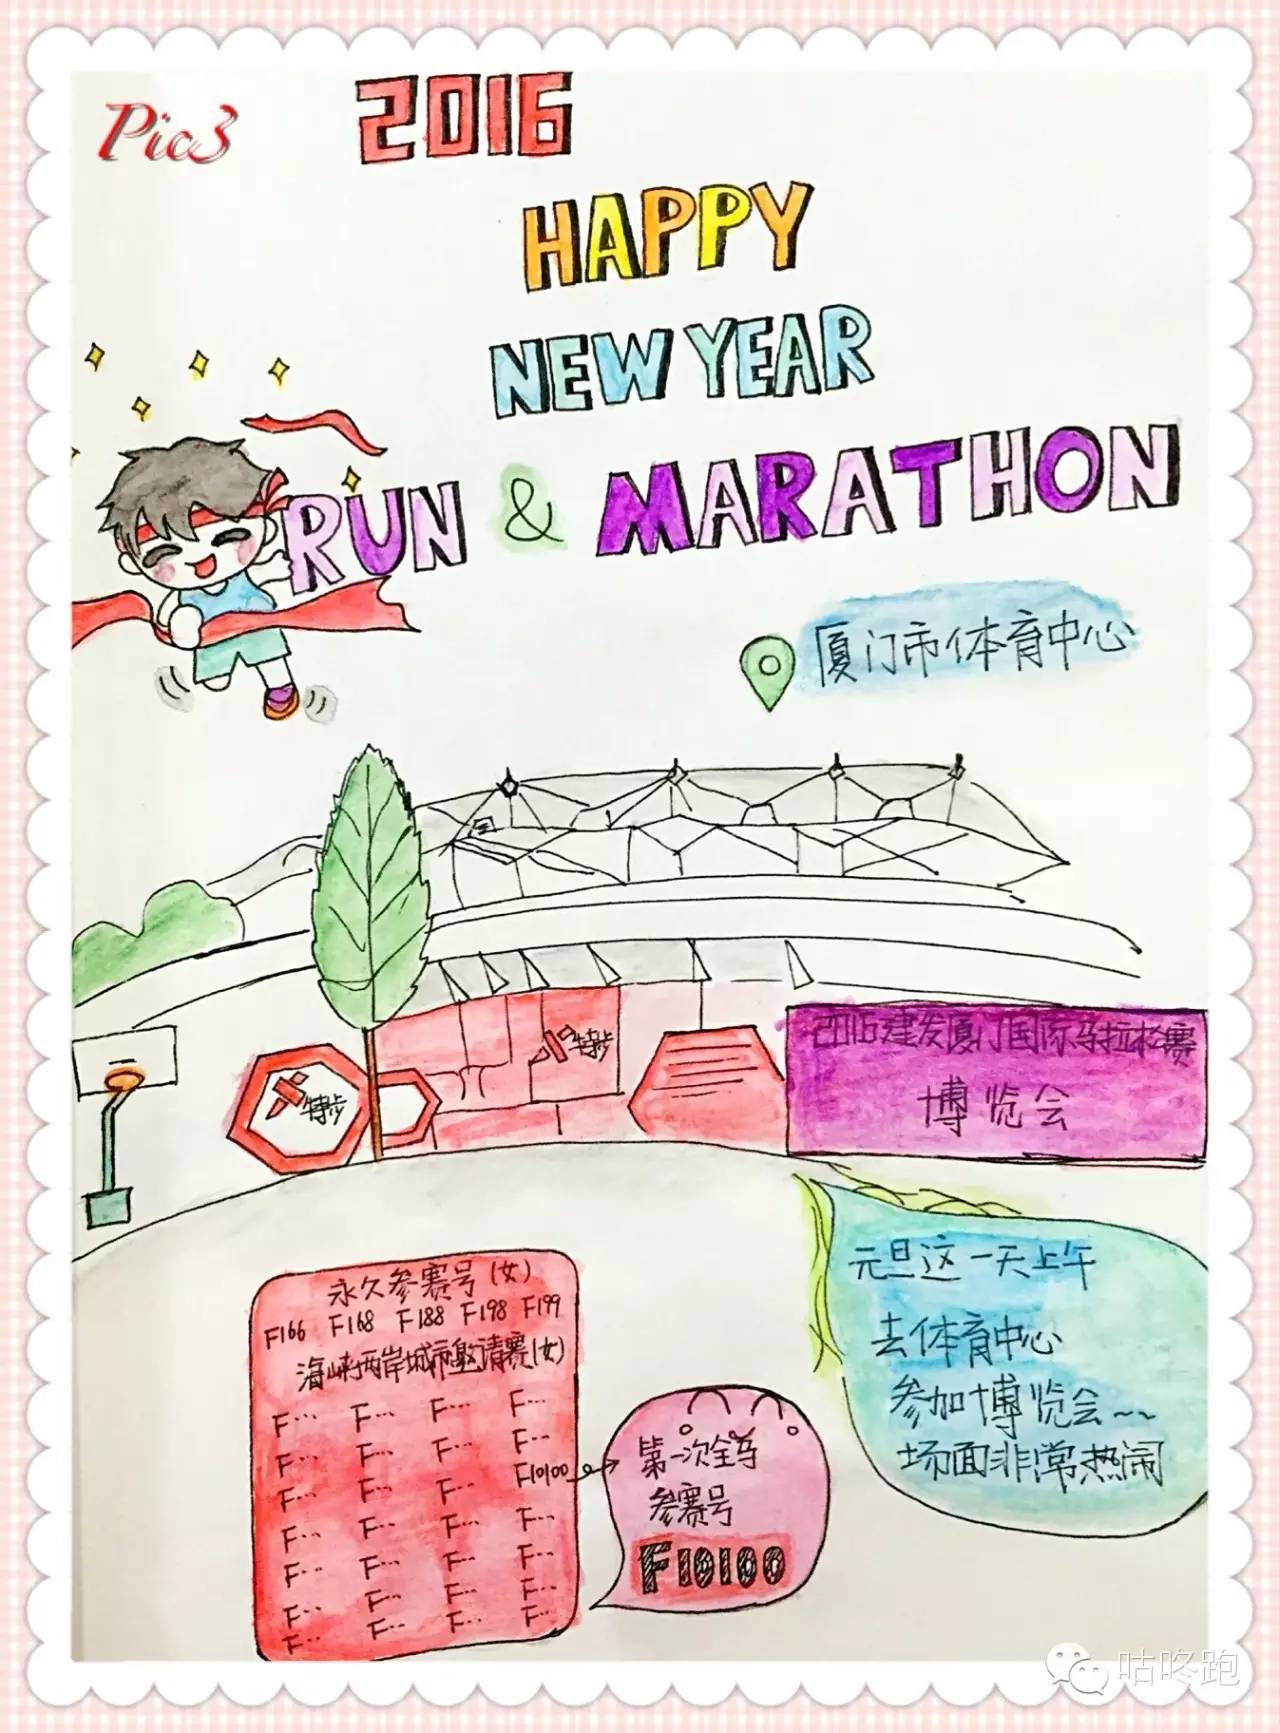 Pic3
2016
HAPPY
NEW YEAR
RUN & MARATHON
厦门市体育中心
特步
特步
2016建发厦门国际马拉松赛
博览会
元旦这一天上午
去体育中心
参加博览会~~
场面非常热闹
永久参赛号(女)
F166 F168 F188 F198 F199
海峡两岸城市邀请赛(女)
F… F… F… F…
F… F… F… F…
F… F… F… F10100
F… F… F… F…
F… F… F… F…
F… F… F… F…
F… F… F… F…
第一次全马
参赛号
F10100
咕咚跑